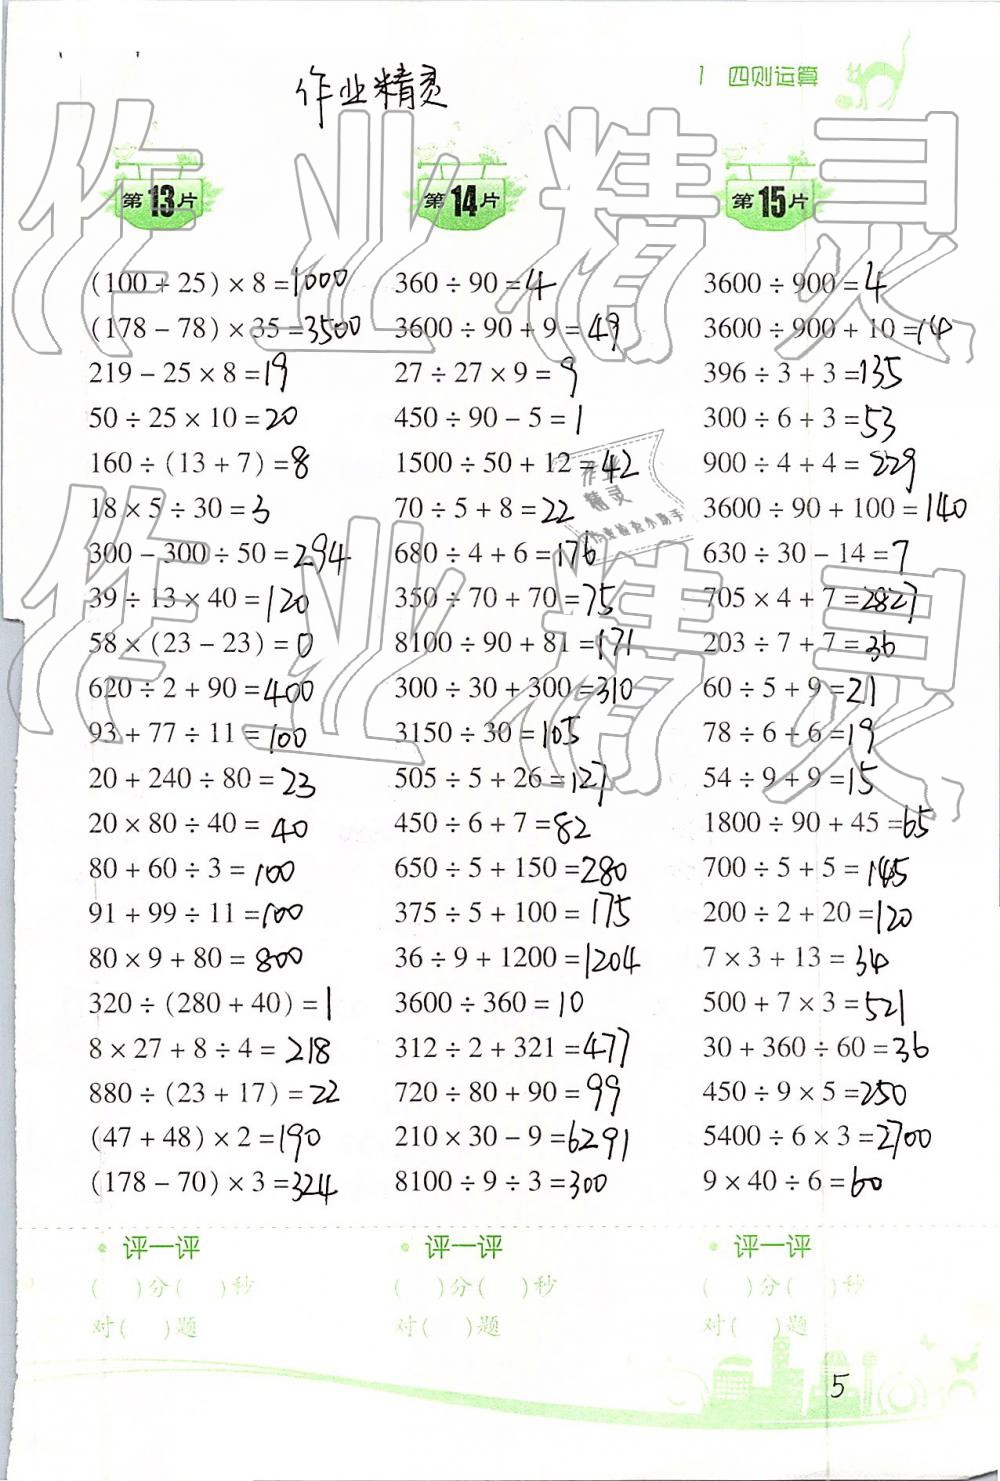 1 四则运算
作业精灵
作业精灵
第13片
(100+25)×8=1000
(178-78)×35=3500
219-25×8=19
50÷25×10=20
160÷(13+7)=8
18×5÷30=3
300-300÷50=294
39÷13×40=120
58×(23-23)=0
620÷2+90=400
93+77÷11=100
20+240÷80=23
20×80÷40=40
80+60÷3=100
91+99÷11=100
80×9+80=800
320÷(280+40)=1
8×27+8÷4=218
880÷(23+17)=22
(47+48)×2=190
(178-70)×3=324
评一评
( )分( )秒
对( )题
第14片
360÷90=4
3600÷90+9=49
27÷27×9=9
450÷90-5=1
1500÷50+12=42
70÷5+8=22
680÷4+6=176
350÷70+70=75
8100÷90+81=171
300÷30+300=310
3150÷30=105
505÷5+26=127
450÷6+7=82
650÷5+150=280
375÷5+100=175
36÷9+1200=1204
3600÷360=10
312÷2+321=477
720÷80+90=99
210×30-9=6291
8100÷9÷3=300
评一评
( )分( )秒
对( )题
第15片
3600÷900=4
3600÷900+10=14
396÷3+3=135
300÷6+3=53
900÷4+4=229
3600÷90+100=140
630÷30-14=7
705×4+7=2827
203÷7+7=36
60÷5+9=21
78÷6+6=19
54÷9+9=15
1800÷90+45=65
700÷5+5=145
200÷2+20=120
7×3+13=34
500+7×3=521
30+360÷60=36
450÷9×5=250
5400÷6×3=2700
9×40÷6=60
评一评
( )分( )秒
对( )题
作业精灵
作业
精灵
5